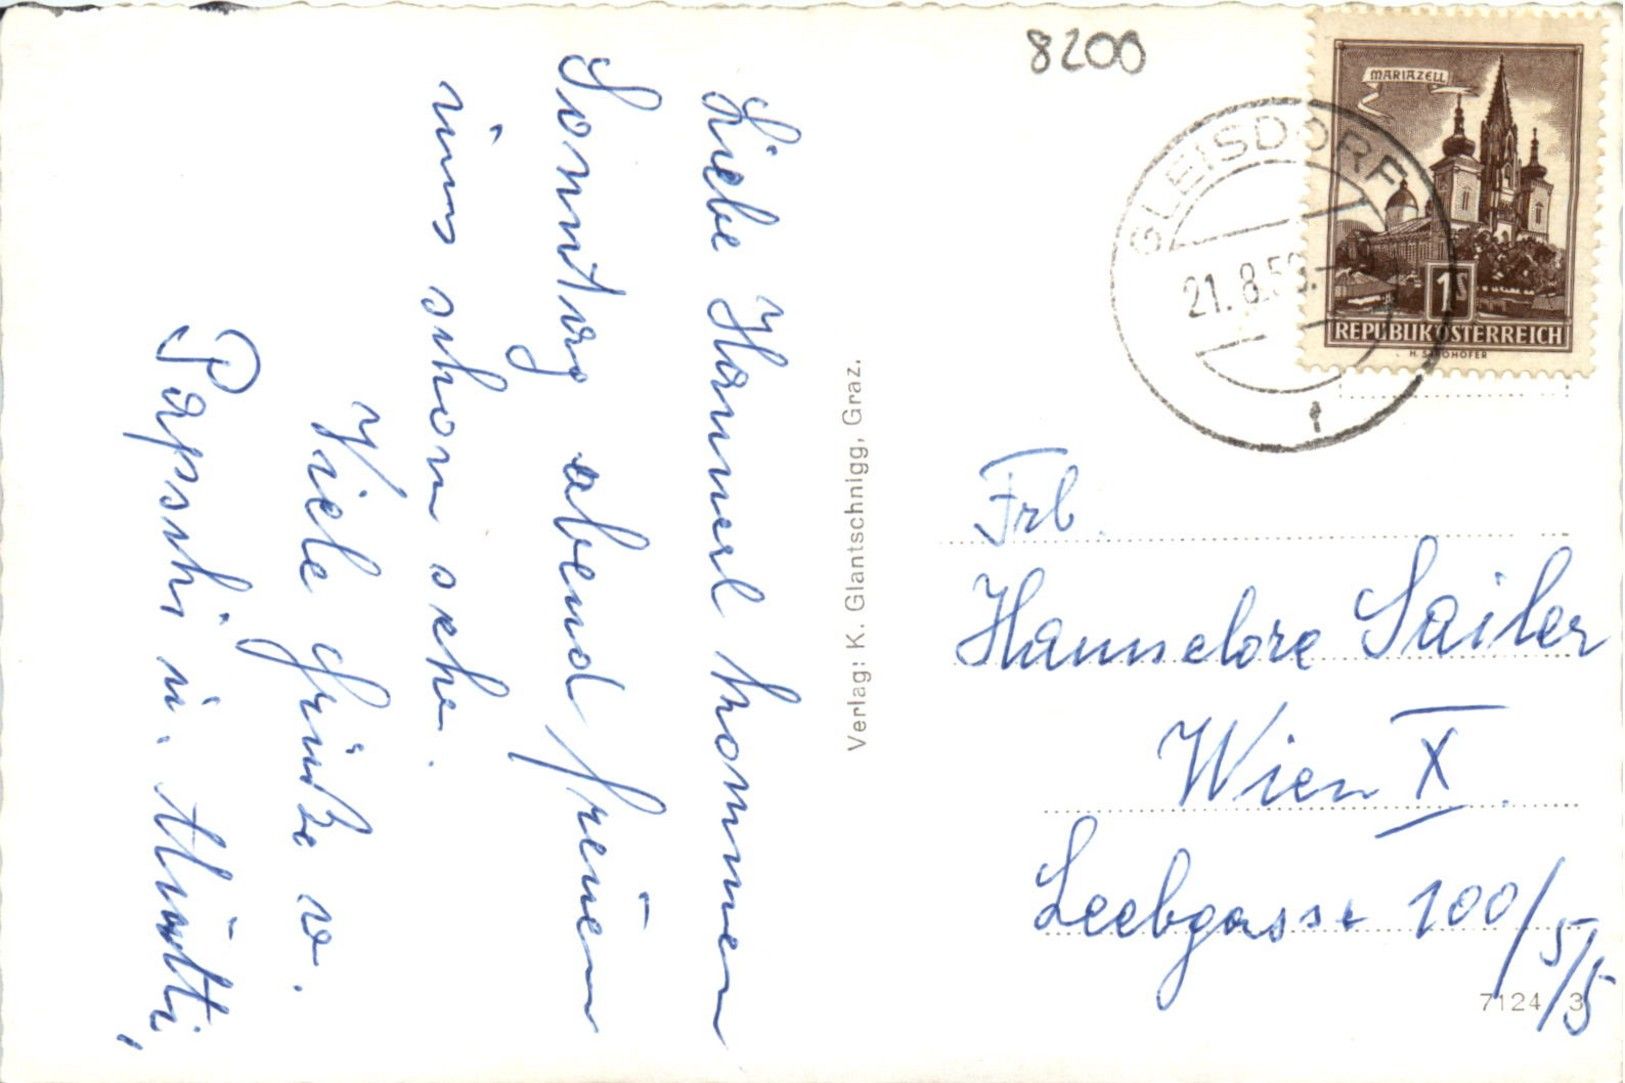 Liebe Hannerl kommen
Sonntag abend freuen
uns schon sehr.
Viele Grüße v.
Papschi u. Mutti,
Verlag: K. Glantschnigg, Graz.
8200
MARIAZELL
1S
REPUBLIK ÖSTERREICH
GLEISDORF
21. 8. 59.
Frl.
Hannelore Sailer
Wien X.
Leebgasse 100/5/5
7124 3